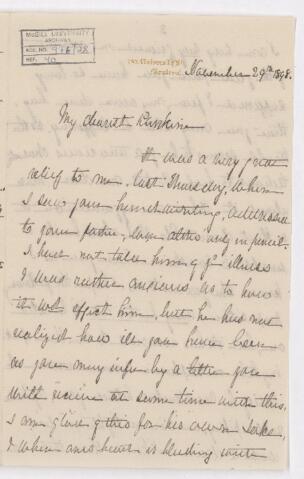 McGILL UNIVERSITY
ARCHIVES
ACC. NO.
REF. 40
Montreal
November 29th 1898.
My dearest
It was a very great
relief to me, last Thursday, when
I saw your handwriting, addressed
to your father, even altho only in pencil.
I have not told him of yr illness
I was rather anxious as to how
it wd effect him, but he has not
realized how ill you have been
as you may infer by a letter you
will receive at same time with this,
I am glad of this for his own sake,
& when ones heart is bleeding